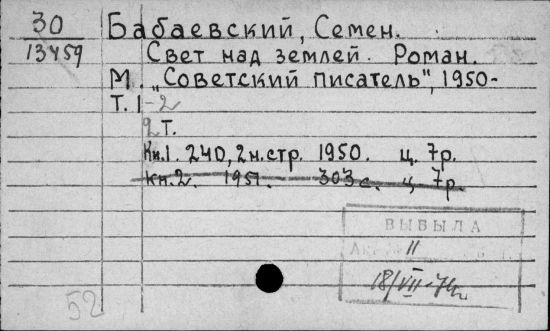 30
13459
Бабаевский, Семен.
Свет над землей. Роман.
М. "Советский писатель", 1950-
Т. 1-2
2 т.
Кн.1. 240, 2 н.стр. 1950. ц. 7р.
Кн.2. 1951. 303 с. ц 7р.
ВЫБЫЛА
Акт 11
18/VII-74г.
52